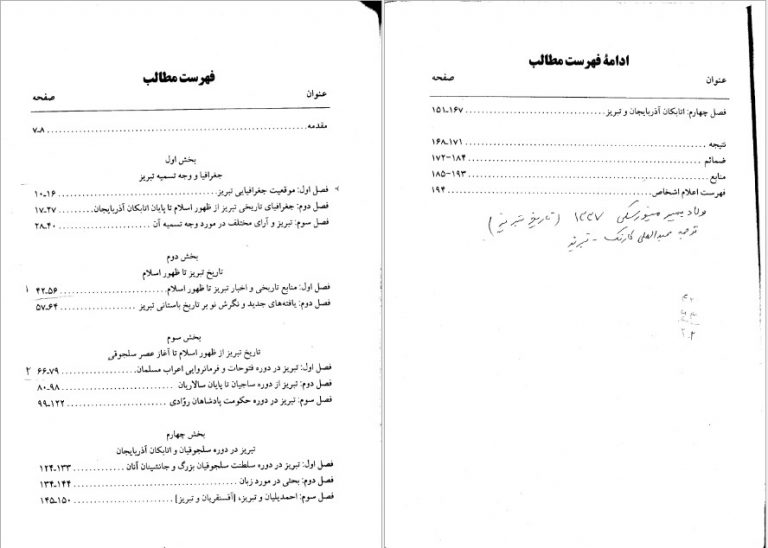 فهرست مطالب
عنوان صفحه
مقدمه ۷ـ۸
بخش اول
جغرافیا و وجه تسمیه تبریز
فصل اول: موقعیت جغرافیایی تبریز ۱۰ـ۱۶
فصل دوم: جغرافیای تاریخی تبریز از ظهور اسلام تا پایان اتابکان آذربایجان ۱۷ـ۲۷
فصل سوم: تبریز و آرای مختلف در مورد وجه تسمیه آن ۲۸ـ۴۰
بخش دوم
تاریخ تبریز تا ظهور اسلام
فصل اول: منابع تاریخی و اخبار تبریز تا ظهور اسلام ۴۲ـ۵۶ ۱
فصل دوم: یافته‌های جدید و نگرش نو بر تاریخ باستانی تبریز ۵۷ـ۶۴
بخش سوم
تاریخ تبریز از ظهور اسلام تا آغاز عصر سلجوقی
فصل اول: تبریز در دوره فتوحات و فرمانروایی اعراب مسلمان ۶۶ـ۷۹ ۲
فصل دوم: تبریز از دوره ساجیان تا پایان سالاریان ۸۰ـ۹۸
فصل سوم: تبریز در دوره حکومت پادشاهان روّادی ۹۹ـ۱۲۲
بخش چهارم
تبریز در دوره سلجوقیان و اتابکان آذربایجان
فصل اول: تبریز در دوره سلطنت سلجوقیان بزرگ و جانشینان آنان ۱۲۴ـ۱۳۳
فصل دوم: بحثی در مورد زبان ۱۳۴ـ۱۴۴
فصل سوم: احمدیلیان و تبریز، [آقسنقریان و تبریز] ۱۴۵ـ۱۵۰
ادامهٔ فهرست مطالب
عنوان صفحه
فصل چهارم: اتابکان آذربایجان و تبریز ۱۵۱ـ۱۶۷
نتیجه ۱۶۸ـ۱۷۱
ضمائم ۱۷۲ـ۱۸۴
منابع ۱۸۵ـ۱۹۳
فهرست اعلام اشخاص ۱۹۴
ولادیمیر مینورسکی ۱۳۳۷ (تاریخ تبریز)
ترجمه عبدالعلی کارنگ - تبریز